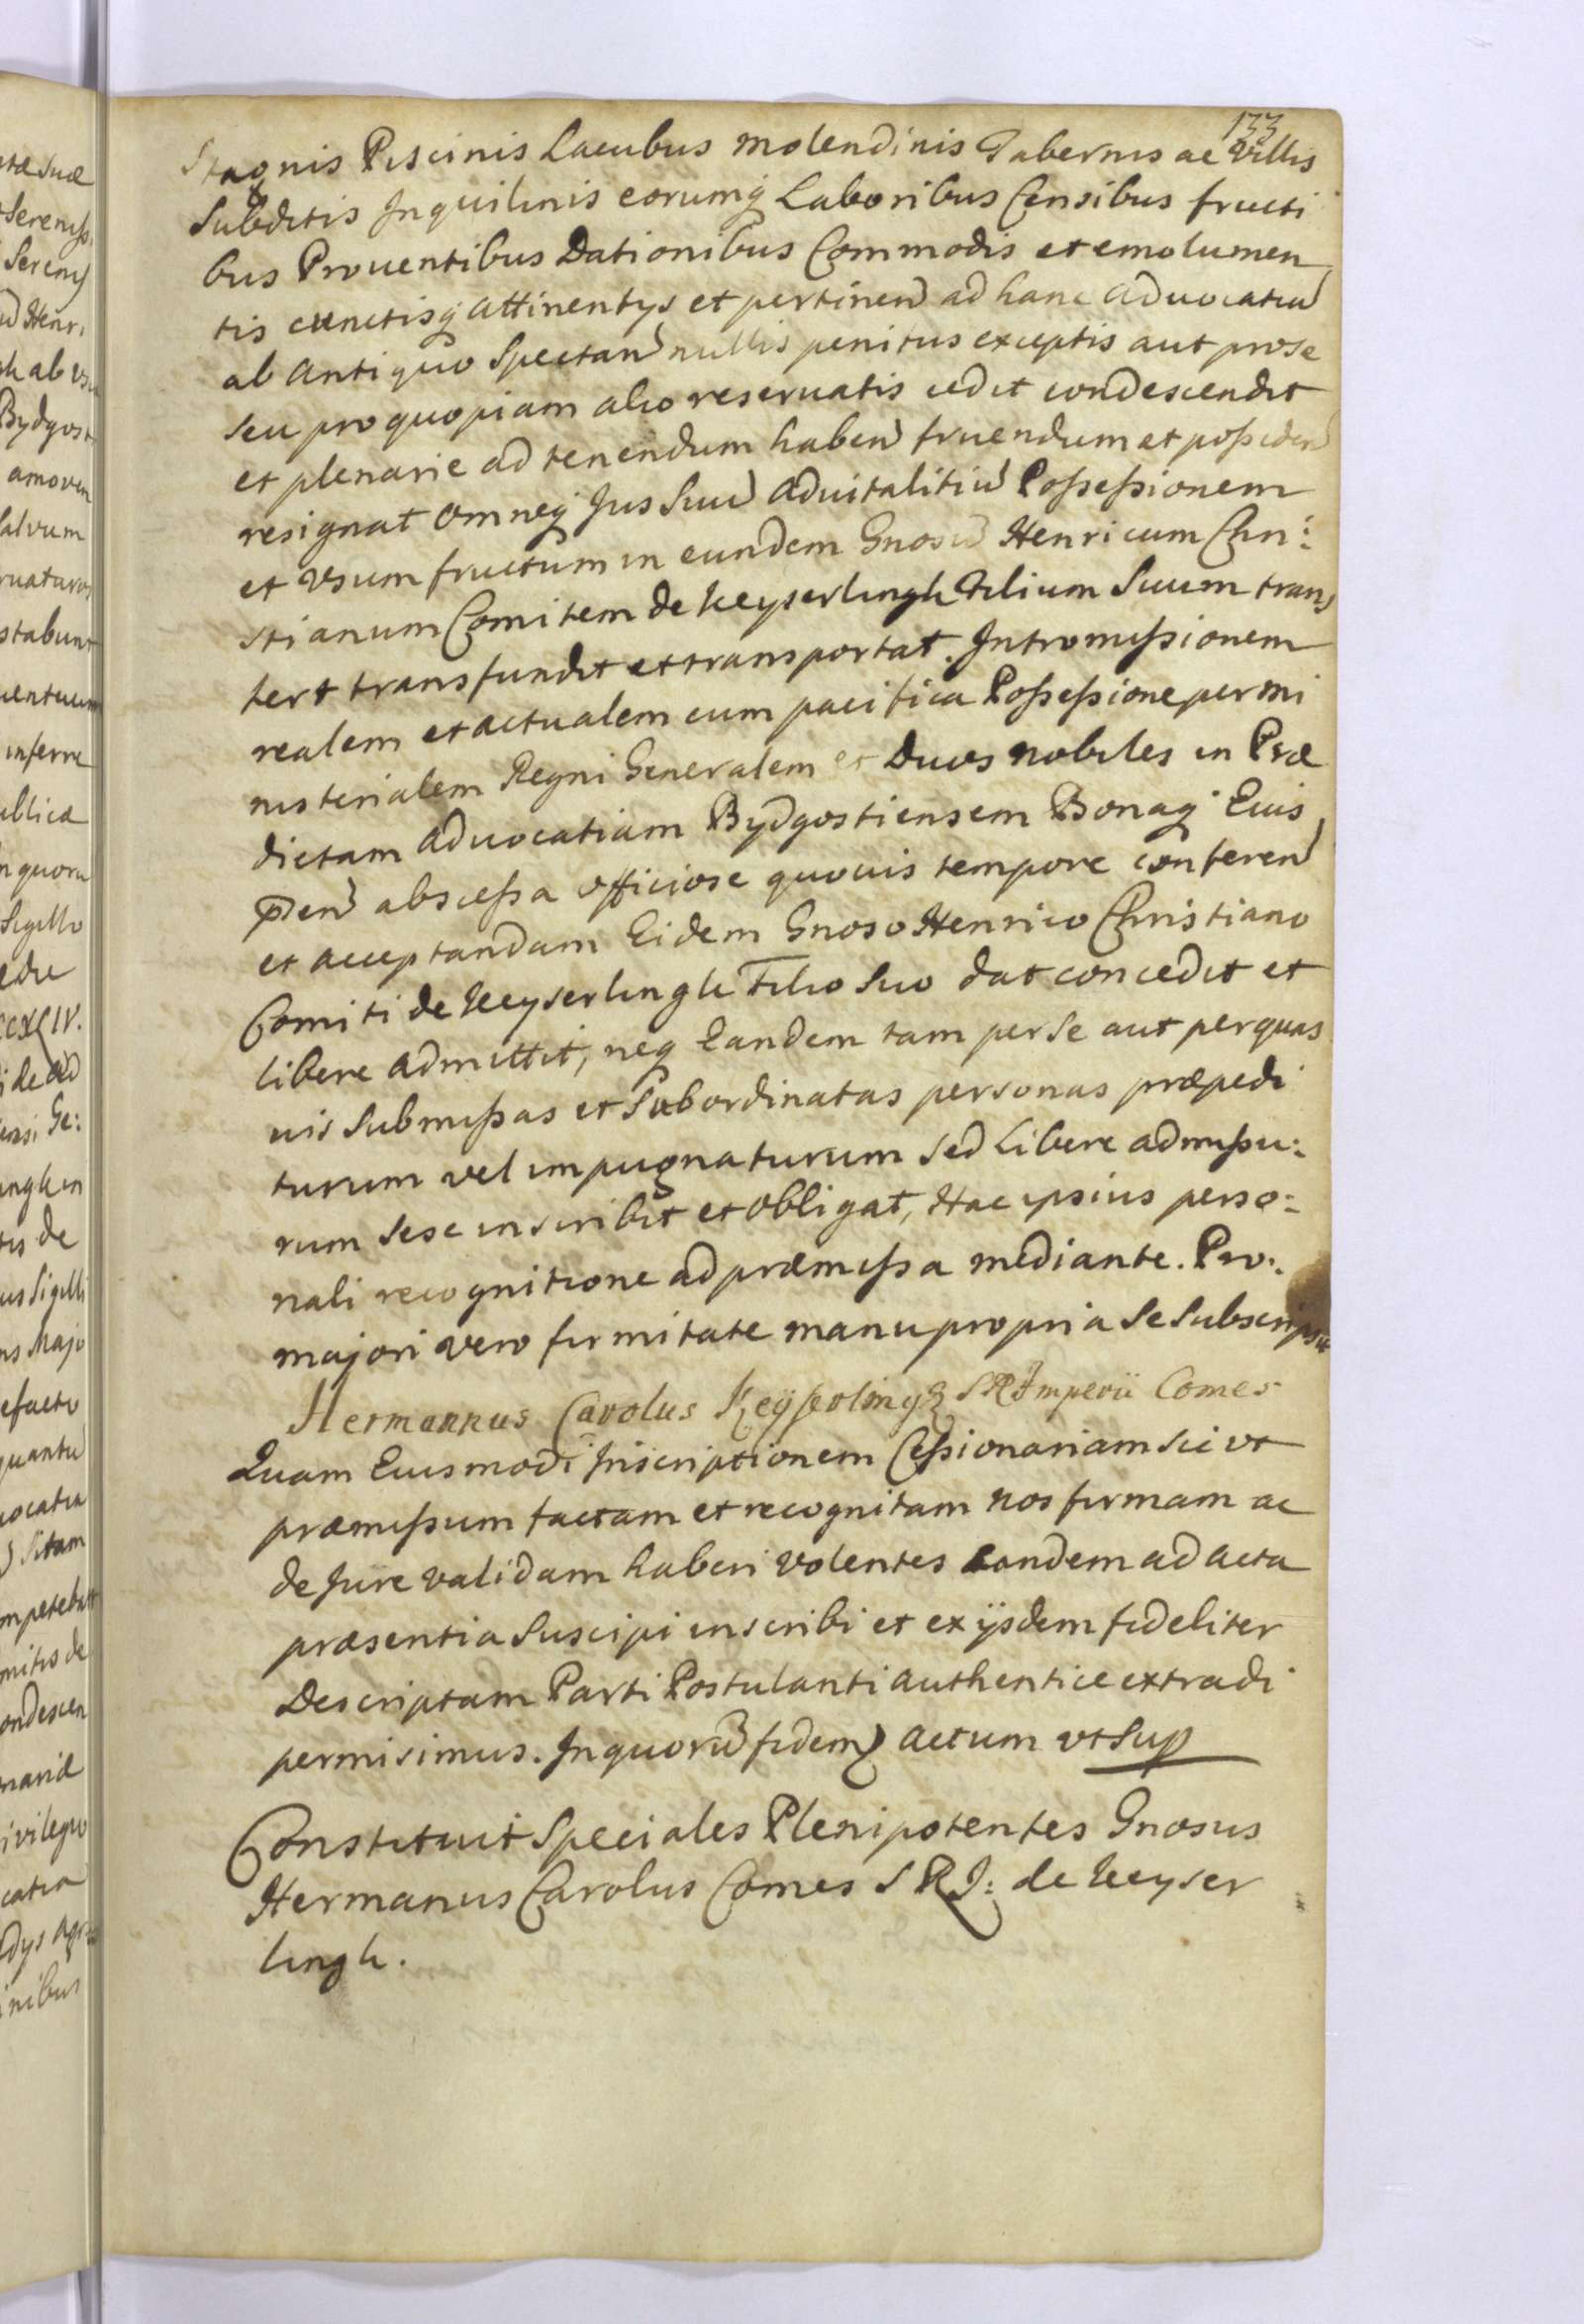 133
Stagnis Piscinis Lacubus molendinis Tabernis ac Villis
Subditis Inquilinis eorumq́ Laboribus Censibus fructi
bus Prouentibus Dationibus Commodis et emolumen
tis cunctisq́ attinentys et pertinen ad hanc aduocatiã
ab antiquo Spectan nullis penitus exceptis aut pro se
seu pro quopiam alio reseruatis cedit condescendit
et plenarie ad tenendum haben fruendum et poßiden
resignat omneq́ Jus Suũ aduitalitiũ Poßeßionem
et vsum fructum in eundem Gnosũ Henricum Chri:
stianum Comitem de Keyserlingh Filium Suum trans
fert transfundit et transportat. Intromißionem
realem et actualem cum pacifica Poßeßione per mi
nisterialem Regni Generalem et Duos nobiles in Præ
dictam aduocatiam Bydgostiensem Bonaq́ Eius
pden absceßa officiose quouis tempore conferen
et acceptandam Eidem Gnoso Henrico Christiano
Comiti de Keyserlingh Filio Suo dat concedit et
libere admittit, neq́ Eandem tam per Se aut per quas
uis Submißas et Subordinatas personas præpedi
turum vel impugnaturum Sed Libere admißu:
rum sese inscribit et obligat, Hac ipsius perso:
nali recognitione ad præmißa mediante. Pro:
majori vero firmitate manu propria Se Subscripsit
Hermannus Carolus Keyserlingk S R Imperii Comes
Quam Eiusmodi Inscriptionem Ceßionariam sic vt
præmißum factam et recognitam nos firmam ac
de Jure validam haberi volentes Eandem ad acta
præsentia Suscipi inscribi et ex ijsdem fideliter
Descriptam Parti Postulanti authentice extradi
permisimus. In quorũ fidem actum vt Sup
Constituit Speciales Plenipotentes Gnosus
Hermanus Carolus Comes S R J: de Keyser
lingh.